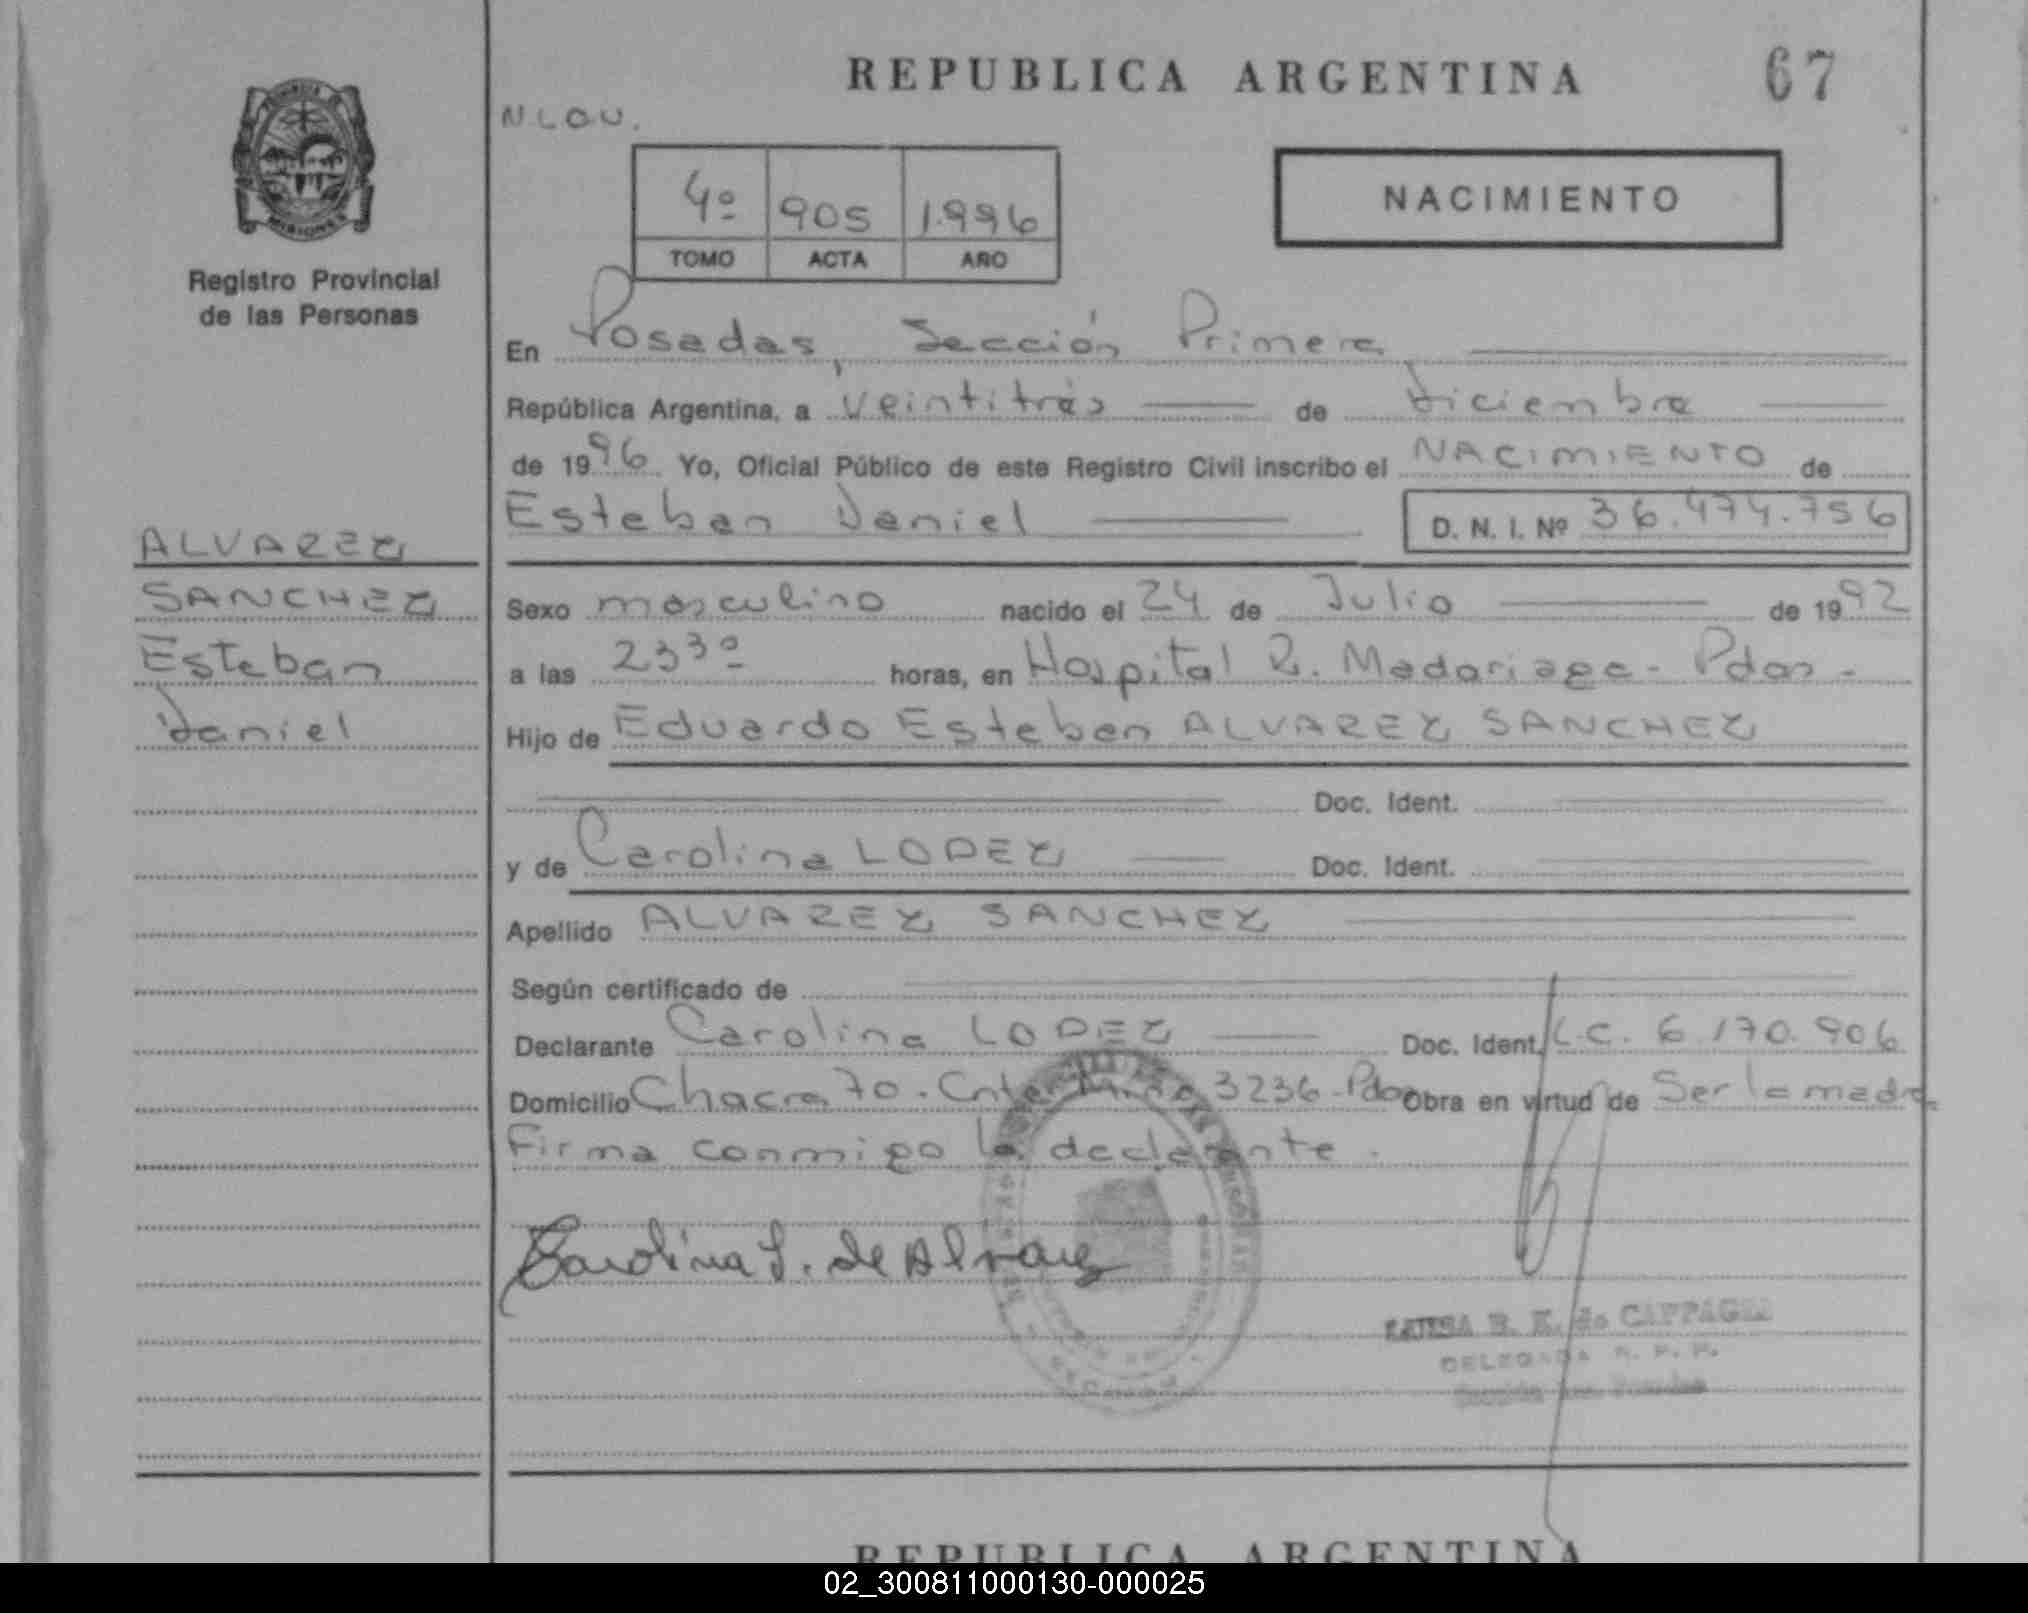 REPUBLICA ARGENTINA
67
N.L.O.U.
4º 905 1.996
TOMO ACTA AÑO
NACIMIENTO
MISIONES
Registro Provincial
de las Personas
En Posadas, Sección Primera
República Argentina, a veintitrés de diciembre
de 1996 Yo, Oficial Público de este Registro Civil inscribo el NACIMIENTO de
Esteban Daniel D. N. I. Nº 36.474.756
ALVAREZ
SANCHEZ
Esteban
Daniel
Sexo masculino nacido el 24 de Julio de 1992
a las 23 3º horas, en Hospital R. Madariaga - Pdas -
Hijo de Eduardo Esteban ALVAREZ SANCHEZ
Doc. Ident.
y de Carolina LOPEZ Doc. Ident.
Apellido ALVAREZ SANCHEZ
Según certificado de
Declarante Carolina LOPEZ Doc. Ident. L.C. 6.170.906
Domicilio Chacra 70 - 3236 - Pdas Obra en virtud de Ser la madre
Firma conmigo la declarante.
Carolina L. de Alvarez
DELEGADA R. P. P.
REPUBLICA ARGENTINA
02_300811000130-000025